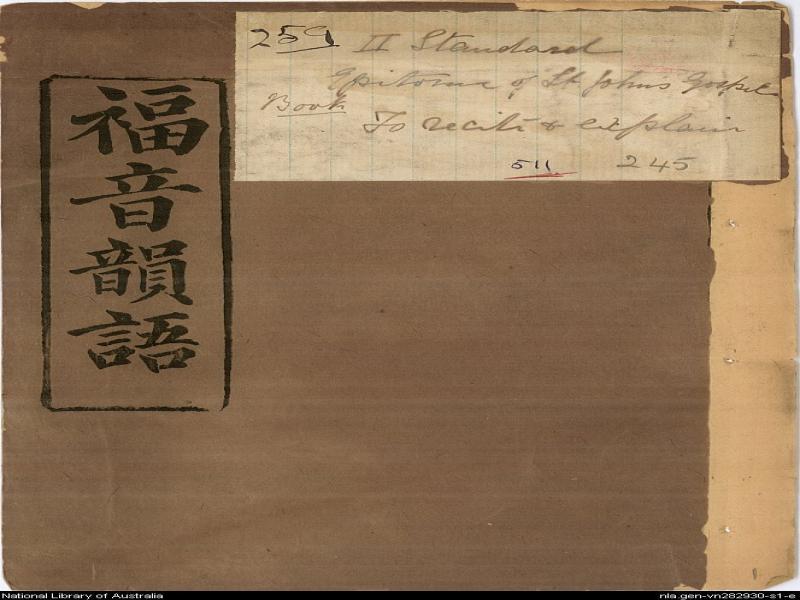 福音韻語
259 II Standard
Epitome of St John's Gospel
Book
To recite & explain
511 245
National Library of Australia
nla.gen-vn282930-s1-e